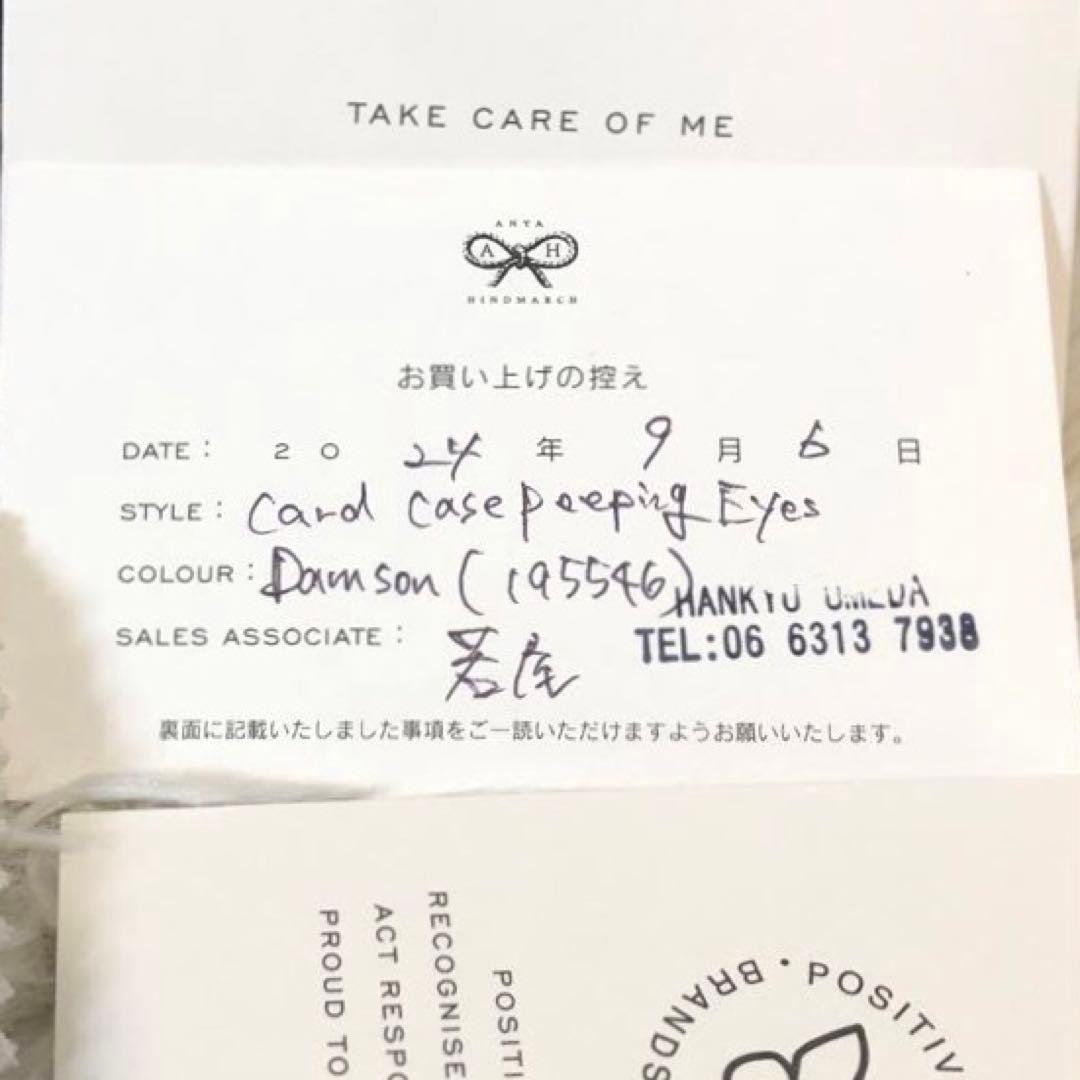 TAKE CARE OF ME
ANYA
A H
HINDMARCH
お買い上げの控え
DATE : 2024年9月6日
STYLE : Card case peeping Eyes
COLOUR : Damson (195546)
HANKYU UMEDA
SALES ASSOCIATE :
TEL:06 6313 7938
裏面に記載いたしました事項をご一読いただけますようお願いいたします。
POSITI
RECOGNISE
ACT RESPO
PROUD TO
BRANDS · POSITIV